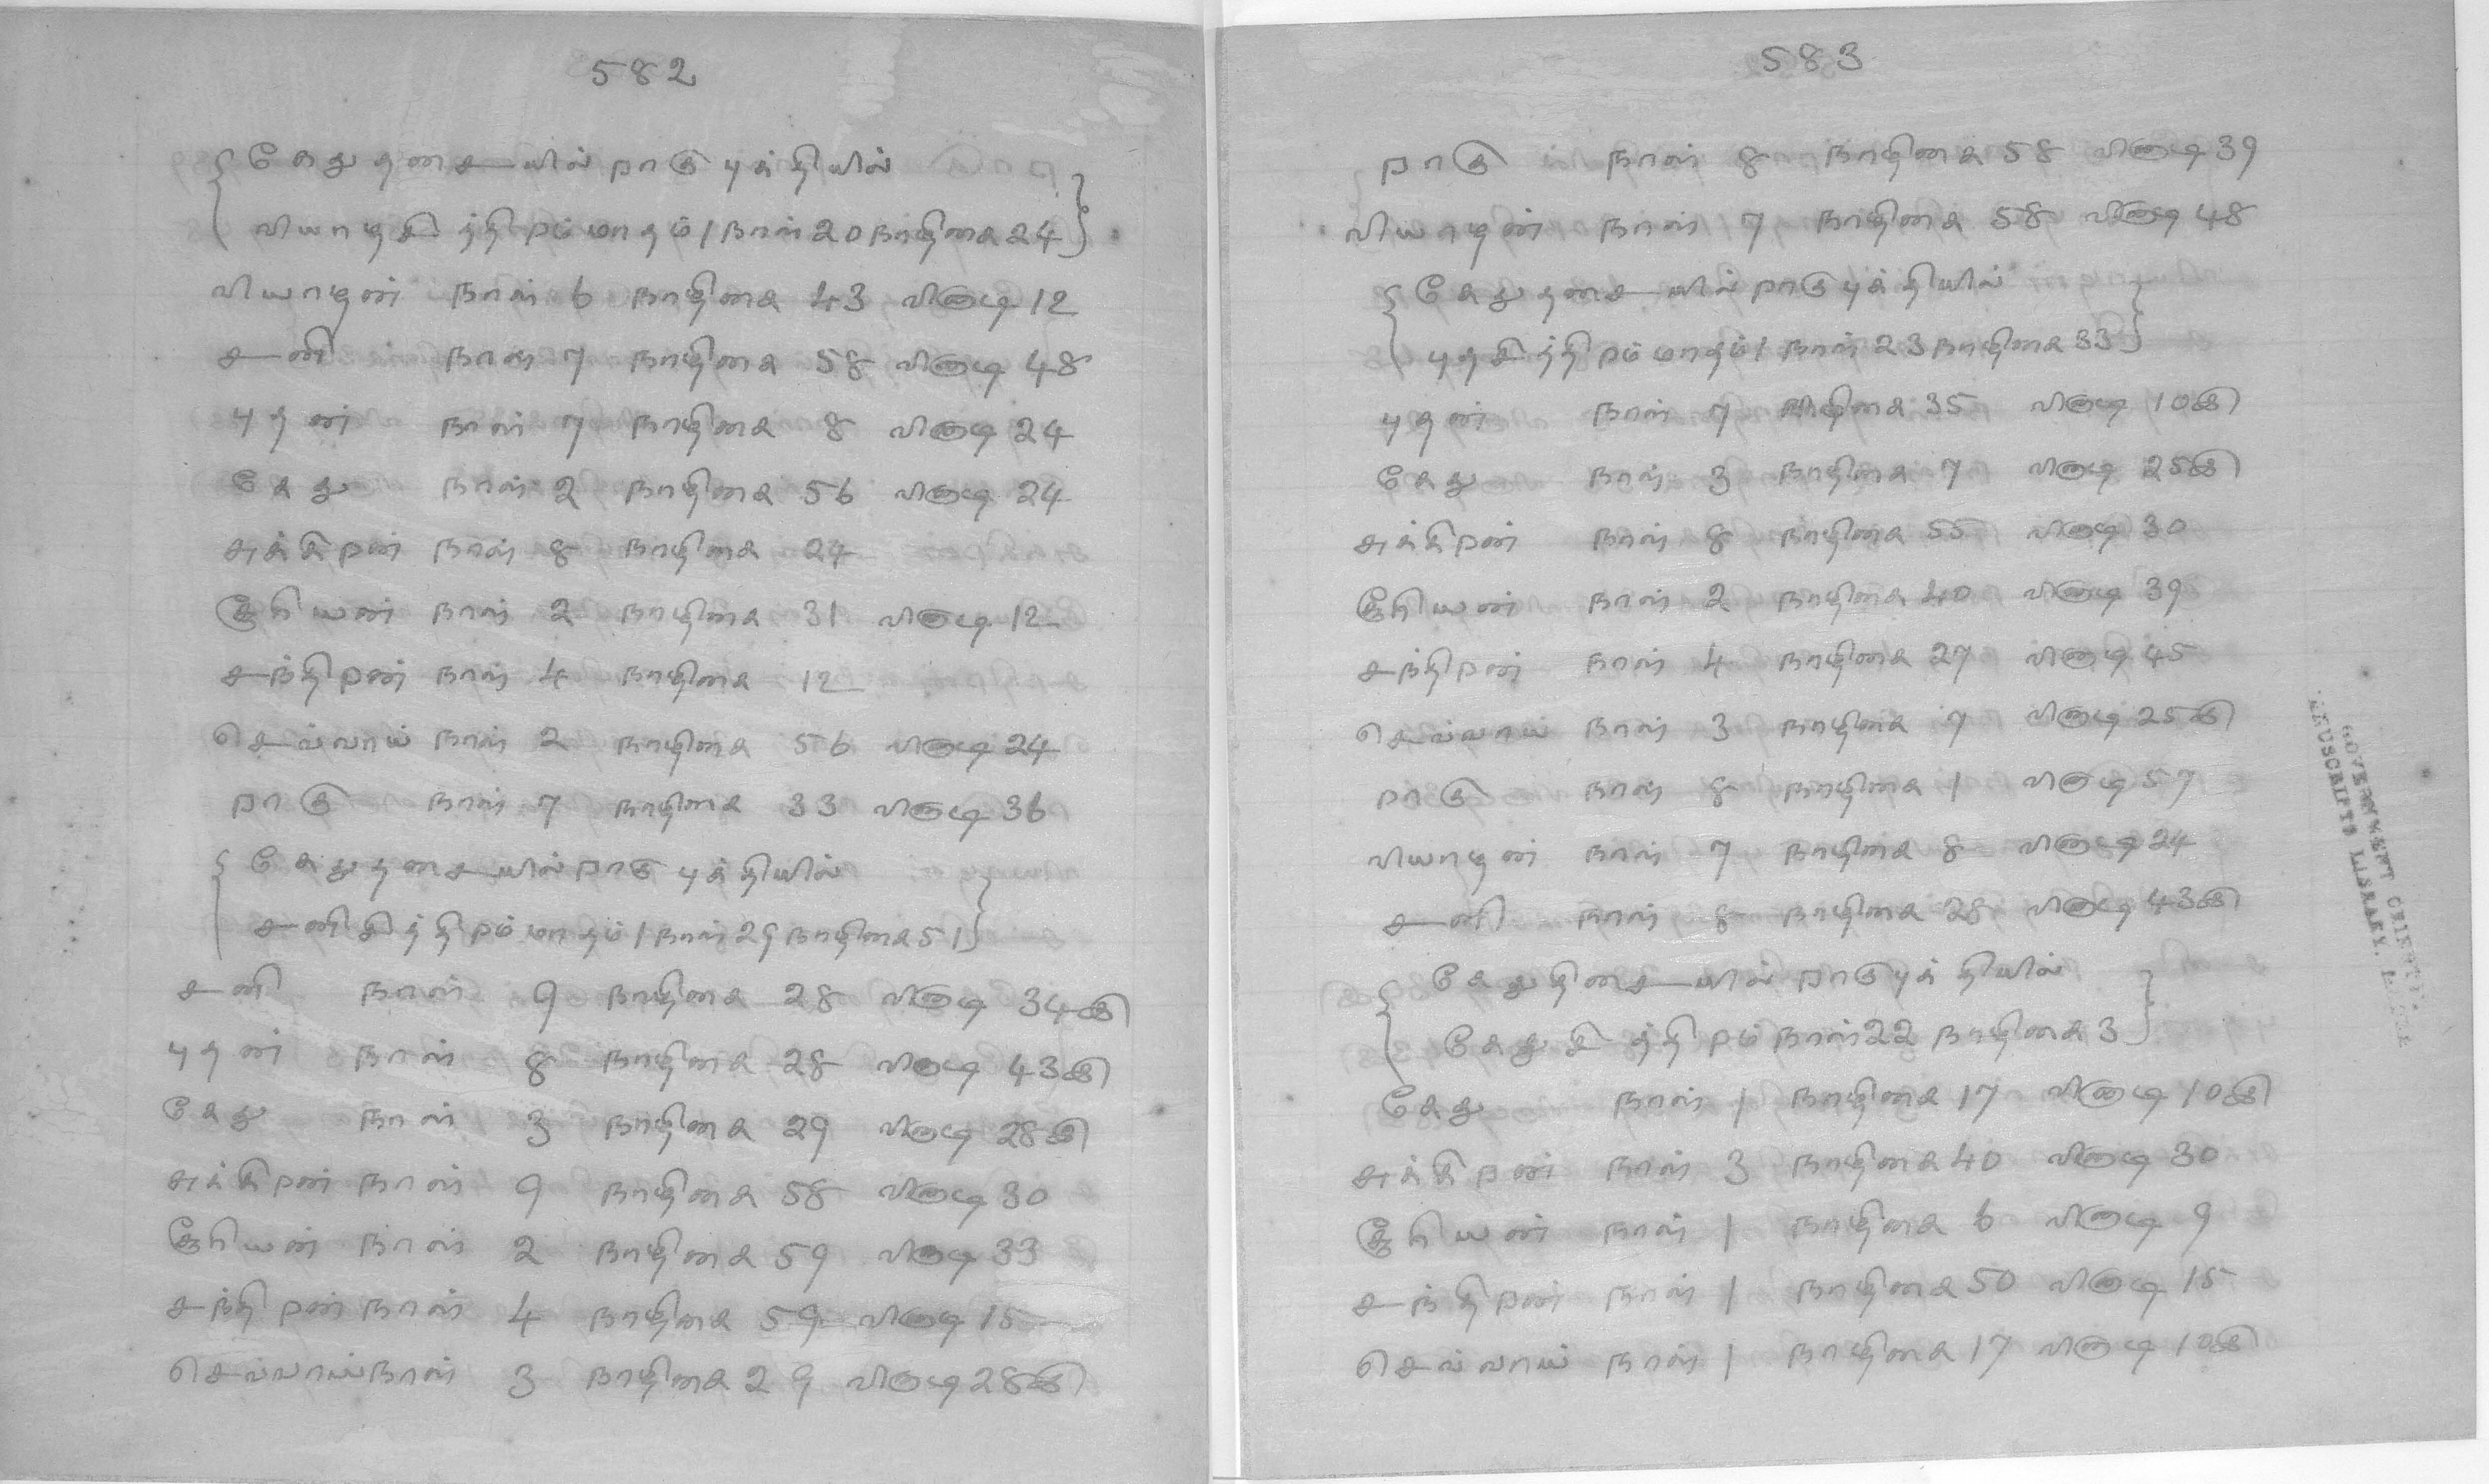 582
கேது தசையில் ராகு புக்தியில்
வியாழசித்திரம் மாதம் 1 நாள் 20 நாழிகை 24
வியாழன் நாள் 6 நாழிகை 43 விநாடி 12
சனி நாள் 7 நாழிகை 58 விநாடி 48
புதன் நாள் 7 நாழிகை 8 விநாடி 24
கேது நாள் 2 நாழிகை 56 விநாடி 24
சுக்கிரன் நாள் 8 நாழிகை 24
சூரியன் நாள் 2 நாழிகை 31 விநாடி 12
சந்திரன் நாள் 4 நாழிகை 12
செவ்வாய் நாள் 2 நாழிகை 56 விநாடி 24
ராகு நாள் 7 நாழிகை 33 விநாடி 36
கேது தசையில் ராகு புக்தியில்
சனி சித்திரம் மாதம் 1 நாள் 29 நாழிகை 51
சனி நாள் 9 நாழிகை 28 விநாடி 34
புதன் நாள் 8 நாழிகை 28 விநாடி 43
கேது நாள் 3 நாழிகை 29 விநாடி 28
சுக்கிரன் நாள் 9 நாழிகை 58 விநாடி 30
சூரியன் நாள் 2 நாழிகை 59 விநாடி 33
சந்திரன் நாள் 4 நாழிகை 59 விநாடி 15
செவ்வாய் நாள் 3 நாழிகை 29 விநாடி 28
583
ராகு நாள் 8 நாழிகை 58 விநாடி 39
வியாழன் நாள் 7 நாழிகை 58 விநாடி 48
கேது தசையில் ராகு புக்தியில்
புதசித்திரம் மாதம் 1 நாள் 23 நாழிகை 33
புதன் நாள் 7 நாழிகை 35 விநாடி 10
கேது நாள் 3 நாழிகை 7 விநாடி 25
சுக்கிரன் நாள் 8 நாழிகை 55 விநாடி 30
சூரியன் நாள் 2 நாழிகை 40 விநாடி 39
சந்திரன் நாள் 4 நாழிகை 27 விநாடி 45
செவ்வாய் நாள் 3 நாழிகை 7 விநாடி 25
ராகு நாள் 8 நாழிகை 1 விநாடி 57
வியாழன் நாள் 7 நாழிகை 8 விநாடி 24
சனி நாள் 8 நாழிகை 28 விநாடி 43
கேது திசையில் ராகு புக்தியில்
கேதுசித்திரம் நாள் 22 நாழிகை 3
கேது நாள் 1 நாழிகை 17 விநாடி 10
சுக்கிரன் நாள் 3 நாழிகை 40 விநாடி 30
சூரியன் நாள் 1 நாழிகை 6 விநாடி 9
சந்திரன் நாள் 1 நாழிகை 50 விநாடி 15
செவ்வாய் நாள் 1 நாழிகை 17 விநாடி 10